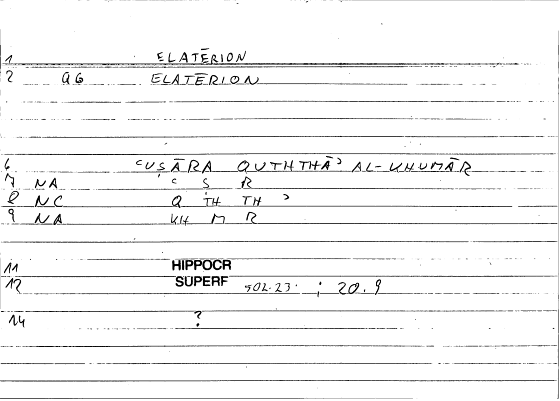 1 ELATĒRION
2 AG ELATĒRION
6 ʿUṢĀRA QUTHTHĀʾ AL-KHUMĀR
7 NA ʿ Ṣ R
8 NC Q TH TH ʾ
9 NA KH M R
11 HIPPOCR
12 SUPERF 502.23. ; 20.9
14 ?